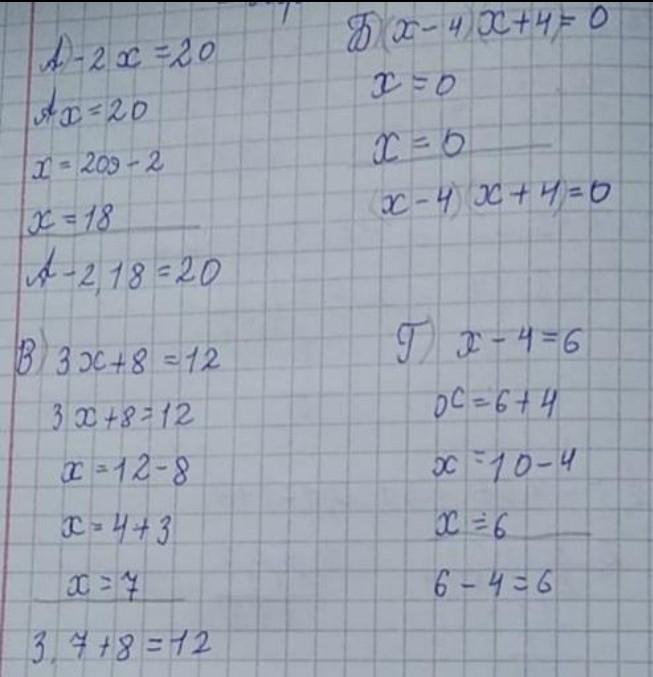 А) -2x = 20
Аx = 20
x = 209 - 2
x = 18
А - 2,18 = 20
Б) (x - 4)(x + 4) = 0
x = 0
x = 0
(x - 4)(x + 4) = 0
В) 3x + 8 = 12
3x + 8 = 12
x = 12 - 8
x = 4 + 3
x = 7
3, 7 + 8 = 12
Г) x - 4 = 6
x = 6 + 4
x = 10 - 4
x = 6
6 - 4 = 6